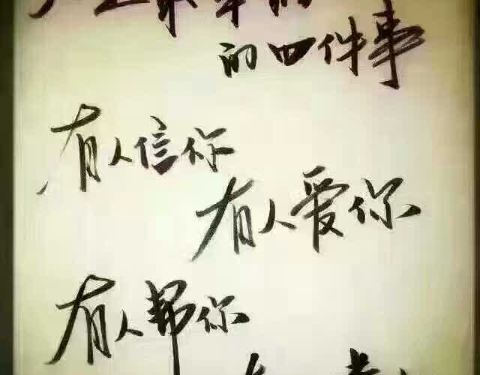 的四件事
有人信你
有人爱你
有人帮你